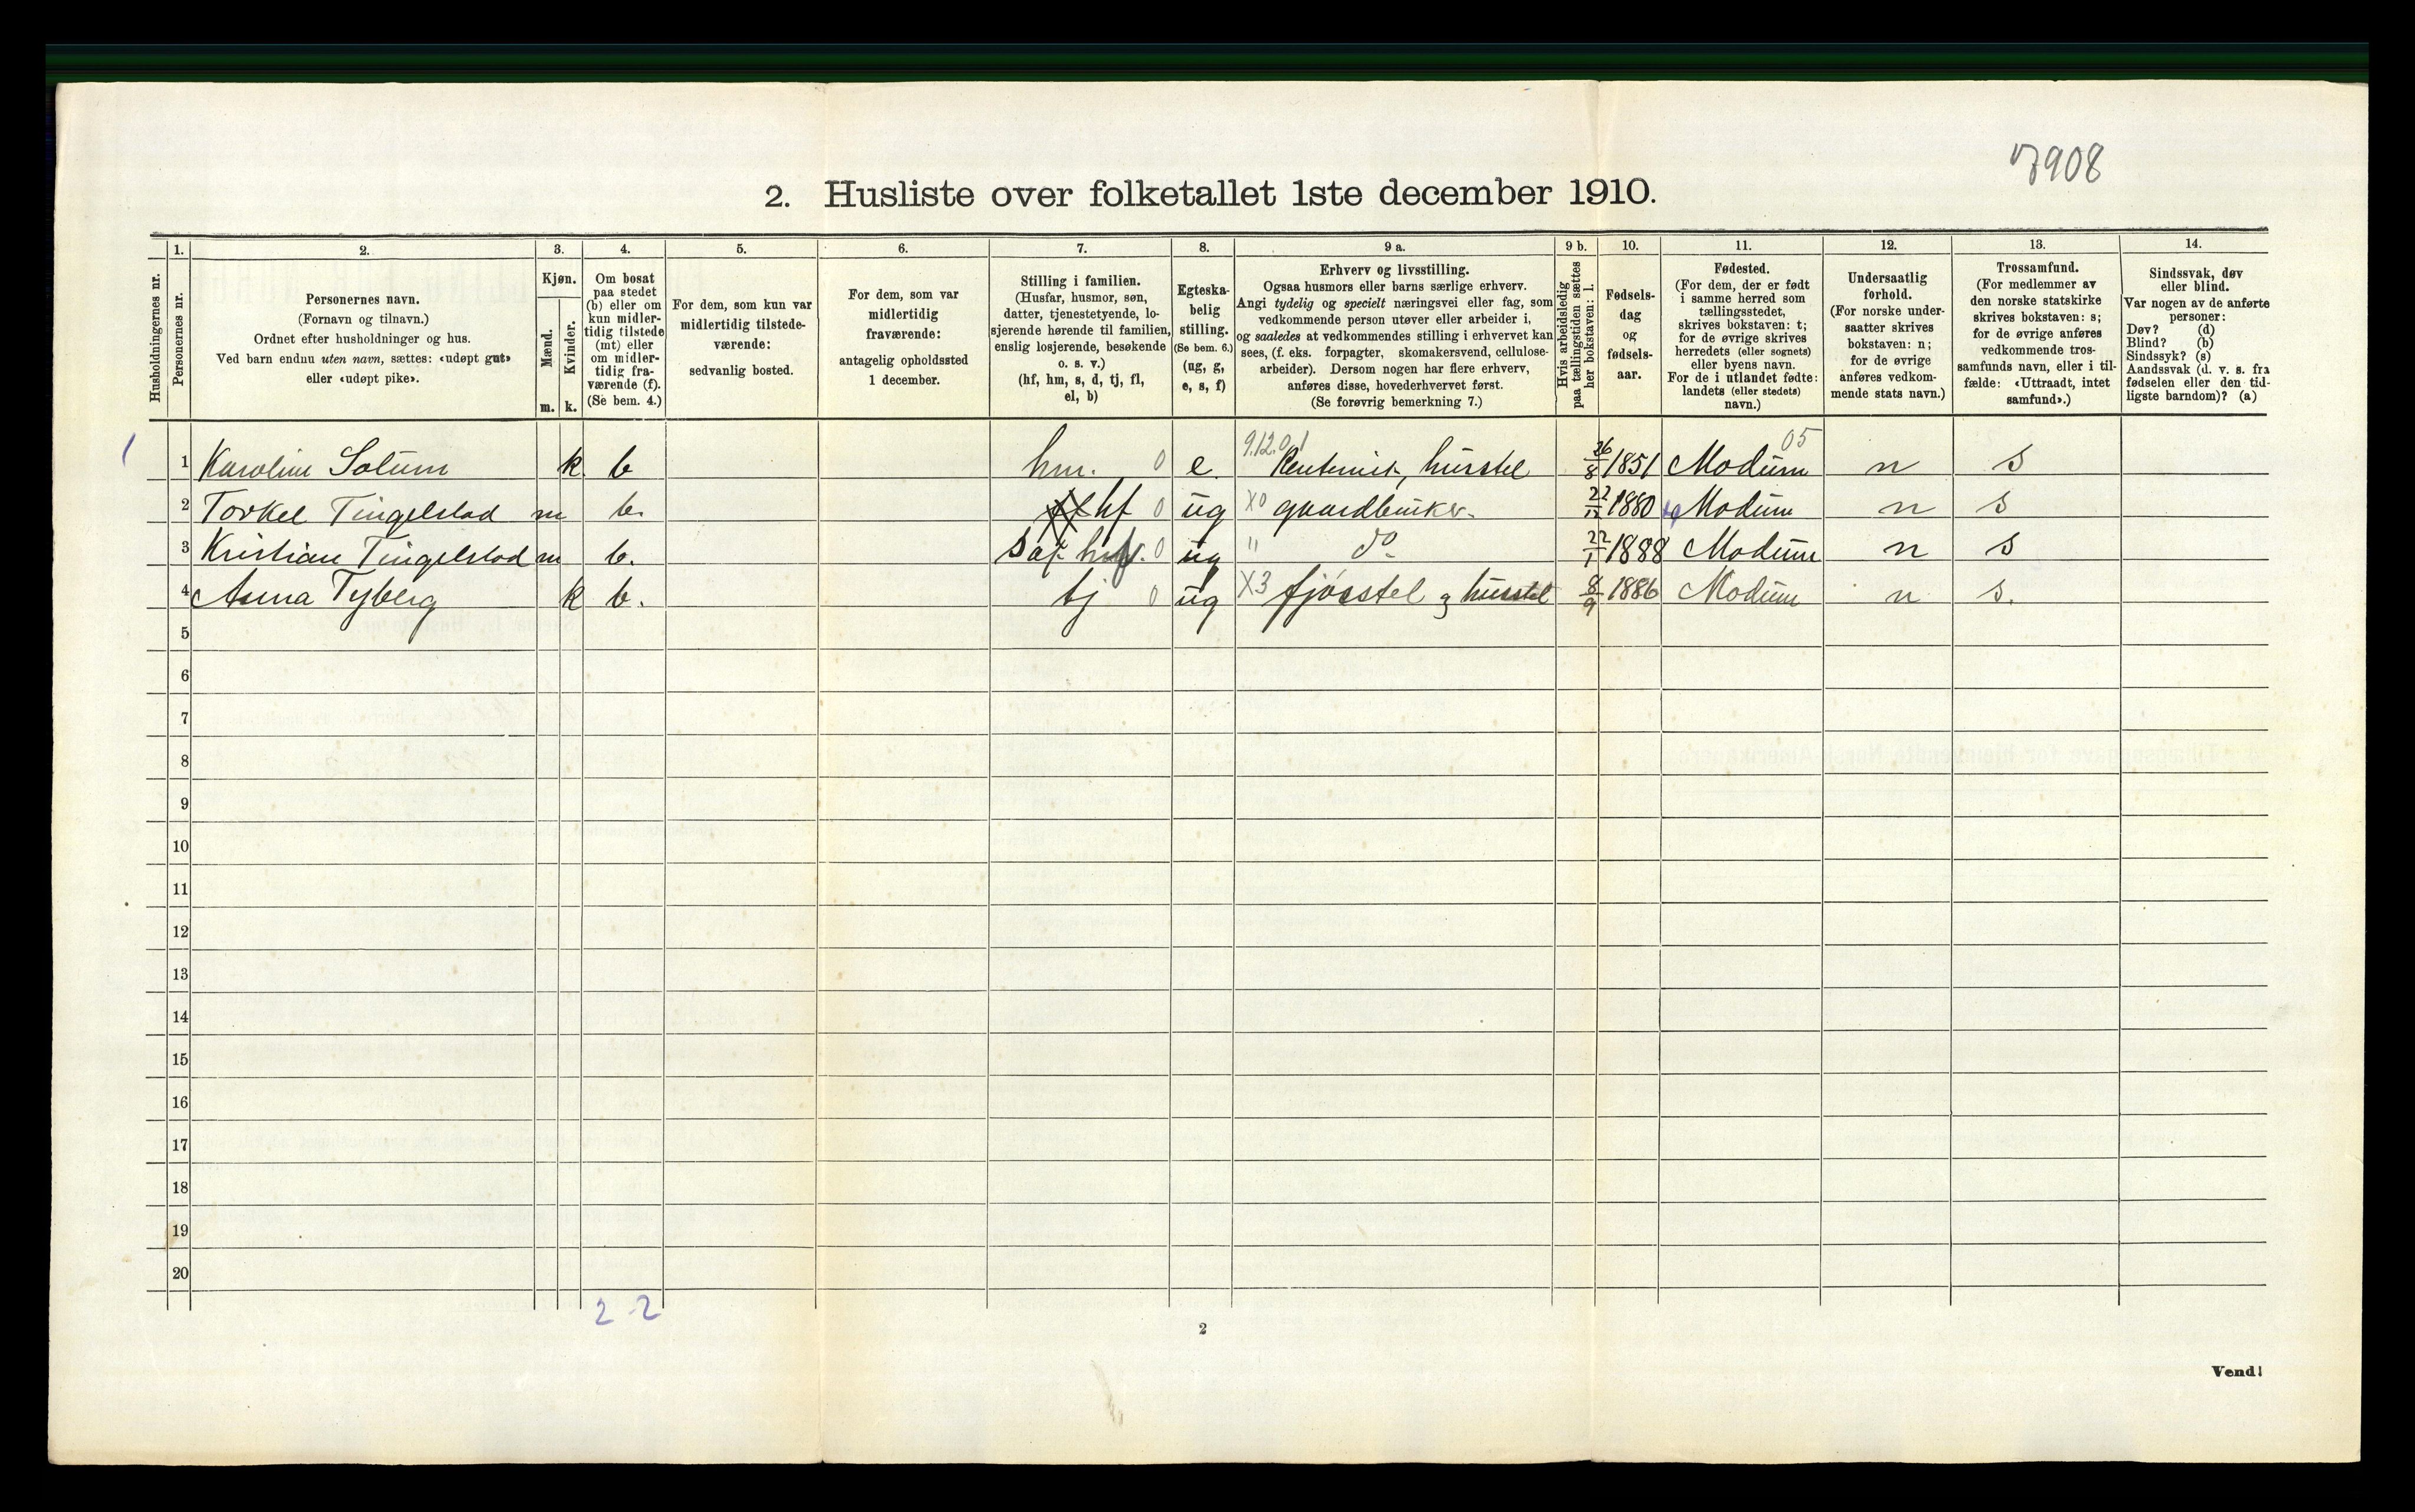 7908
2. Husliste over folketallet 1ste december 1910.
Husholdningernes nr.
1.
Personernes nr.
2.
Personernes navn.
(Fornavn og tilnavn.)
Ordnet efter husholdninger og hus.
Ved barn endnu uten navn, sættes: «udøpt gut»
eller «udøpt pike».
3.
Kjøn.
Mænd.
Kvinder.
m. k.
4.
Om bosat
paa stedet
(b) eller om
kun midler-
tidig tilstede
(mt) eller
om midler-
tidig fra-
værende (f).
(Se bem. 4.)
5.
For dem, som kun var
midlertidig tilstede-
værende:
sedvanlig bosted.
6.
For dem, som var
midlertidig
fraværende:
antagelig opholdssted
1 december.
7.
Stilling i familien.
(Husfar, husmor, søn,
datter, tjenestetyende, lo-
sjerende hørende til familien,
enslig losjerende, besøkende
o. s. v.)
(hf, hm, s, d, tj, fl,
el, b)
8.
Egteska-
belig
stilling.
(Se bem. 6.)
(ug, g,
e, s, f)
9 a.
Erhverv og livsstilling.
Ogsaa husmors eller barns særlige erhverv.
Angi tydelig og specielt næringsvei eller fag, som
vedkommende person utøver eller arbeider i,
og saaledes at vedkommendes stilling i erhvervet kan
sees, (f. eks. forpagter, skomakersvend, cellulose-
arbeider). Dersom nogen har flere erhverv,
anføres disse, hovederhvervet først.
(Se forøvrig bemerkning 7.)
9 b.
Hvis arbeidsledig
paa tællingstiden sættes
her bokstaven: l.
10.
Fødsels-
dag
og
fødsels-
aar.
11.
Fødested.
(For dem, der er født
i samme herred som
tællingsstedet,
skrives bokstaven: t;
for de øvrige skrives
herredets (eller sognets)
eller byens navn.
For de i utlandet fødte:
landets (eller stedets)
navn.)
12.
Undersaatlig
forhold.
(For norske under-
saatter skrives
bokstaven: n;
for de øvrige
anføres vedkom-
mende stats navn.)
13.
Trossamfund.
(For medlemmer av
den norske statskirke
skrives bokstaven: s;
for de øvrige anføres
vedkommende tros-
samfunds navn, eller i til-
fælde: «Uttraadt, intet
samfund».)
14.
Sindssvak, døv
eller blind.
Var nogen av de anførte
personer:
Døv? (d)
Blind? (b)
Sindssyk? (s)
Aandssvak (d. v. s. fra
fødselen eller den tid-
ligste barndom)? (a)
1 1 Karoline Solum k b hm. 0 e 9.12.01 Rentenist, husstel 26/8 1851 Modum 05 n s
2 Torkel Tingelstad m b. hf 0 ug X0 gaardbruker. 22/12 1880 Modum n s
3 Kristian Tingelstad m b. s af 0 ug " do 22/1 1888 Modum n s
4 Anna Tyberg k b. tj 0 ug X3 fjøsstel og husstel 8/9 1886 Modum n s.
5
6
7
8
9
10
11
12
13
14
15
16
17
18
19
20
2 - 2
2
Vend!